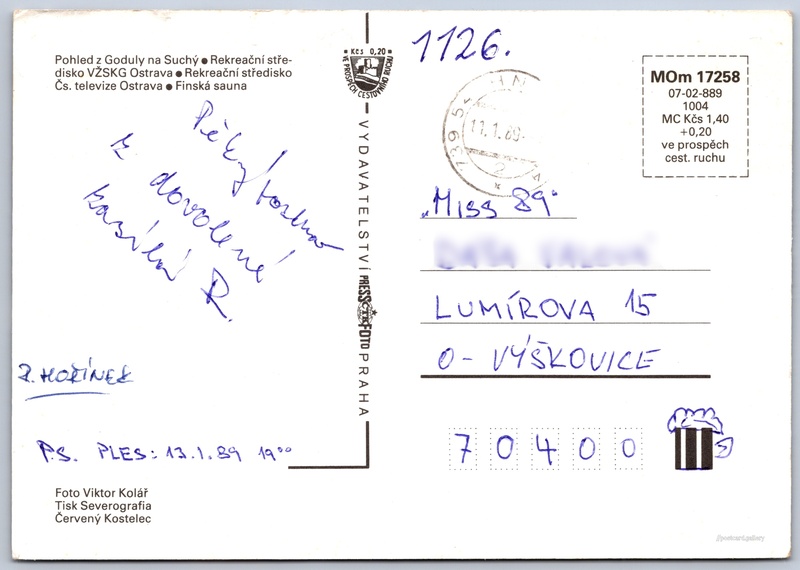 Pohled z Goduly na Suchý ● Rekreační stře-
disko VŽSKG Ostrava ● Rekreační středisko
Čs. televize Ostrava ● Finská sauna
Kčs 0,20
VE PROSPĚCH CESTOVNÍHO RUCHU
1126.
MOm 17258
07-02-889
1004
MC Kčs 1,40
+0,20
ve prospěch
cest. ruchu
739 5
11.1.89
2
Pěkný
z dovolené
R.
VYDAVATELSTVÍ PRESSFOTO PRAHA
ČTK
„Miss 89"
LUMÍROVA 15
O- VÝŠKOVICE
70400
R. HOŘÍNEK
P.S. PLES: 13.1.89 19⁰⁰
Foto Viktor Kolář
Tisk Severografia
Červený Kostelec